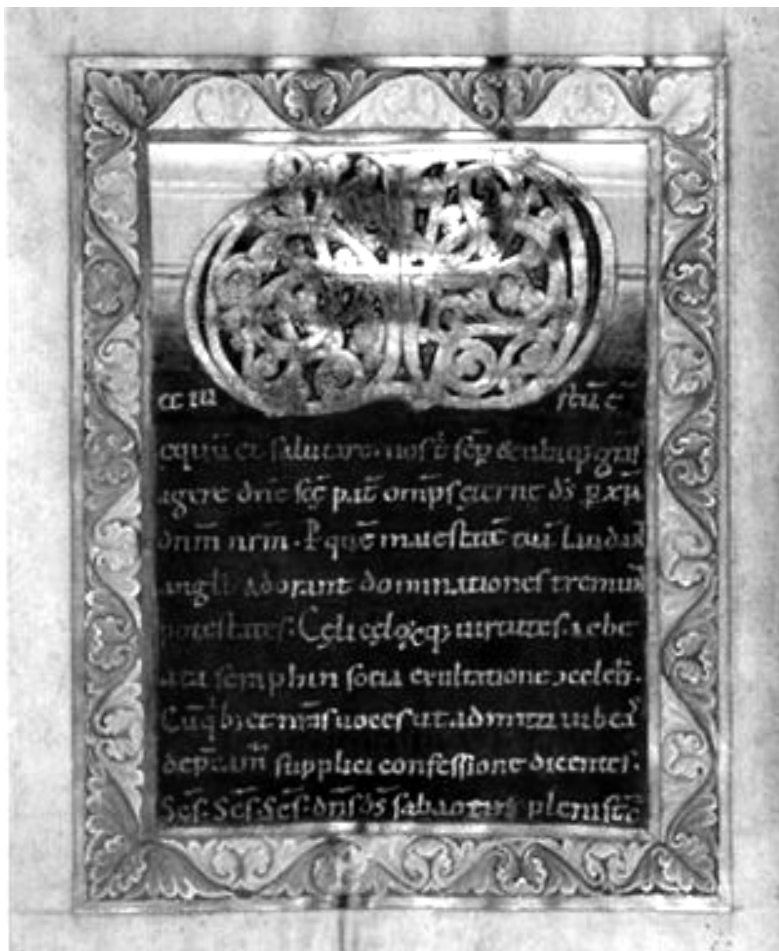 et iu stū ē
ęquū et salutare. nos t̄ sēp & ubiq; grās
agere dn̄e sc̄ę pat̄ omp̄s ęterne d̄s p̱ xp̄m
dn̄m nr̄m. P̱ quē maiestatē tuā laudan̄
angli adorant dominationes tremun̄
potestates. Cęli cęloꝝq; uirtutes. ac be
ata seraphin socia exultatione ɔcelebr̄.
Cū qͥb; et nr̄as uoces ut admitti iubeas
dep̄camͬ supplici confessione dicentes.
Sc̄s. Sc̄s. Sc̄s. dn̄s d̄s sabaoth pleni st̄ c̄